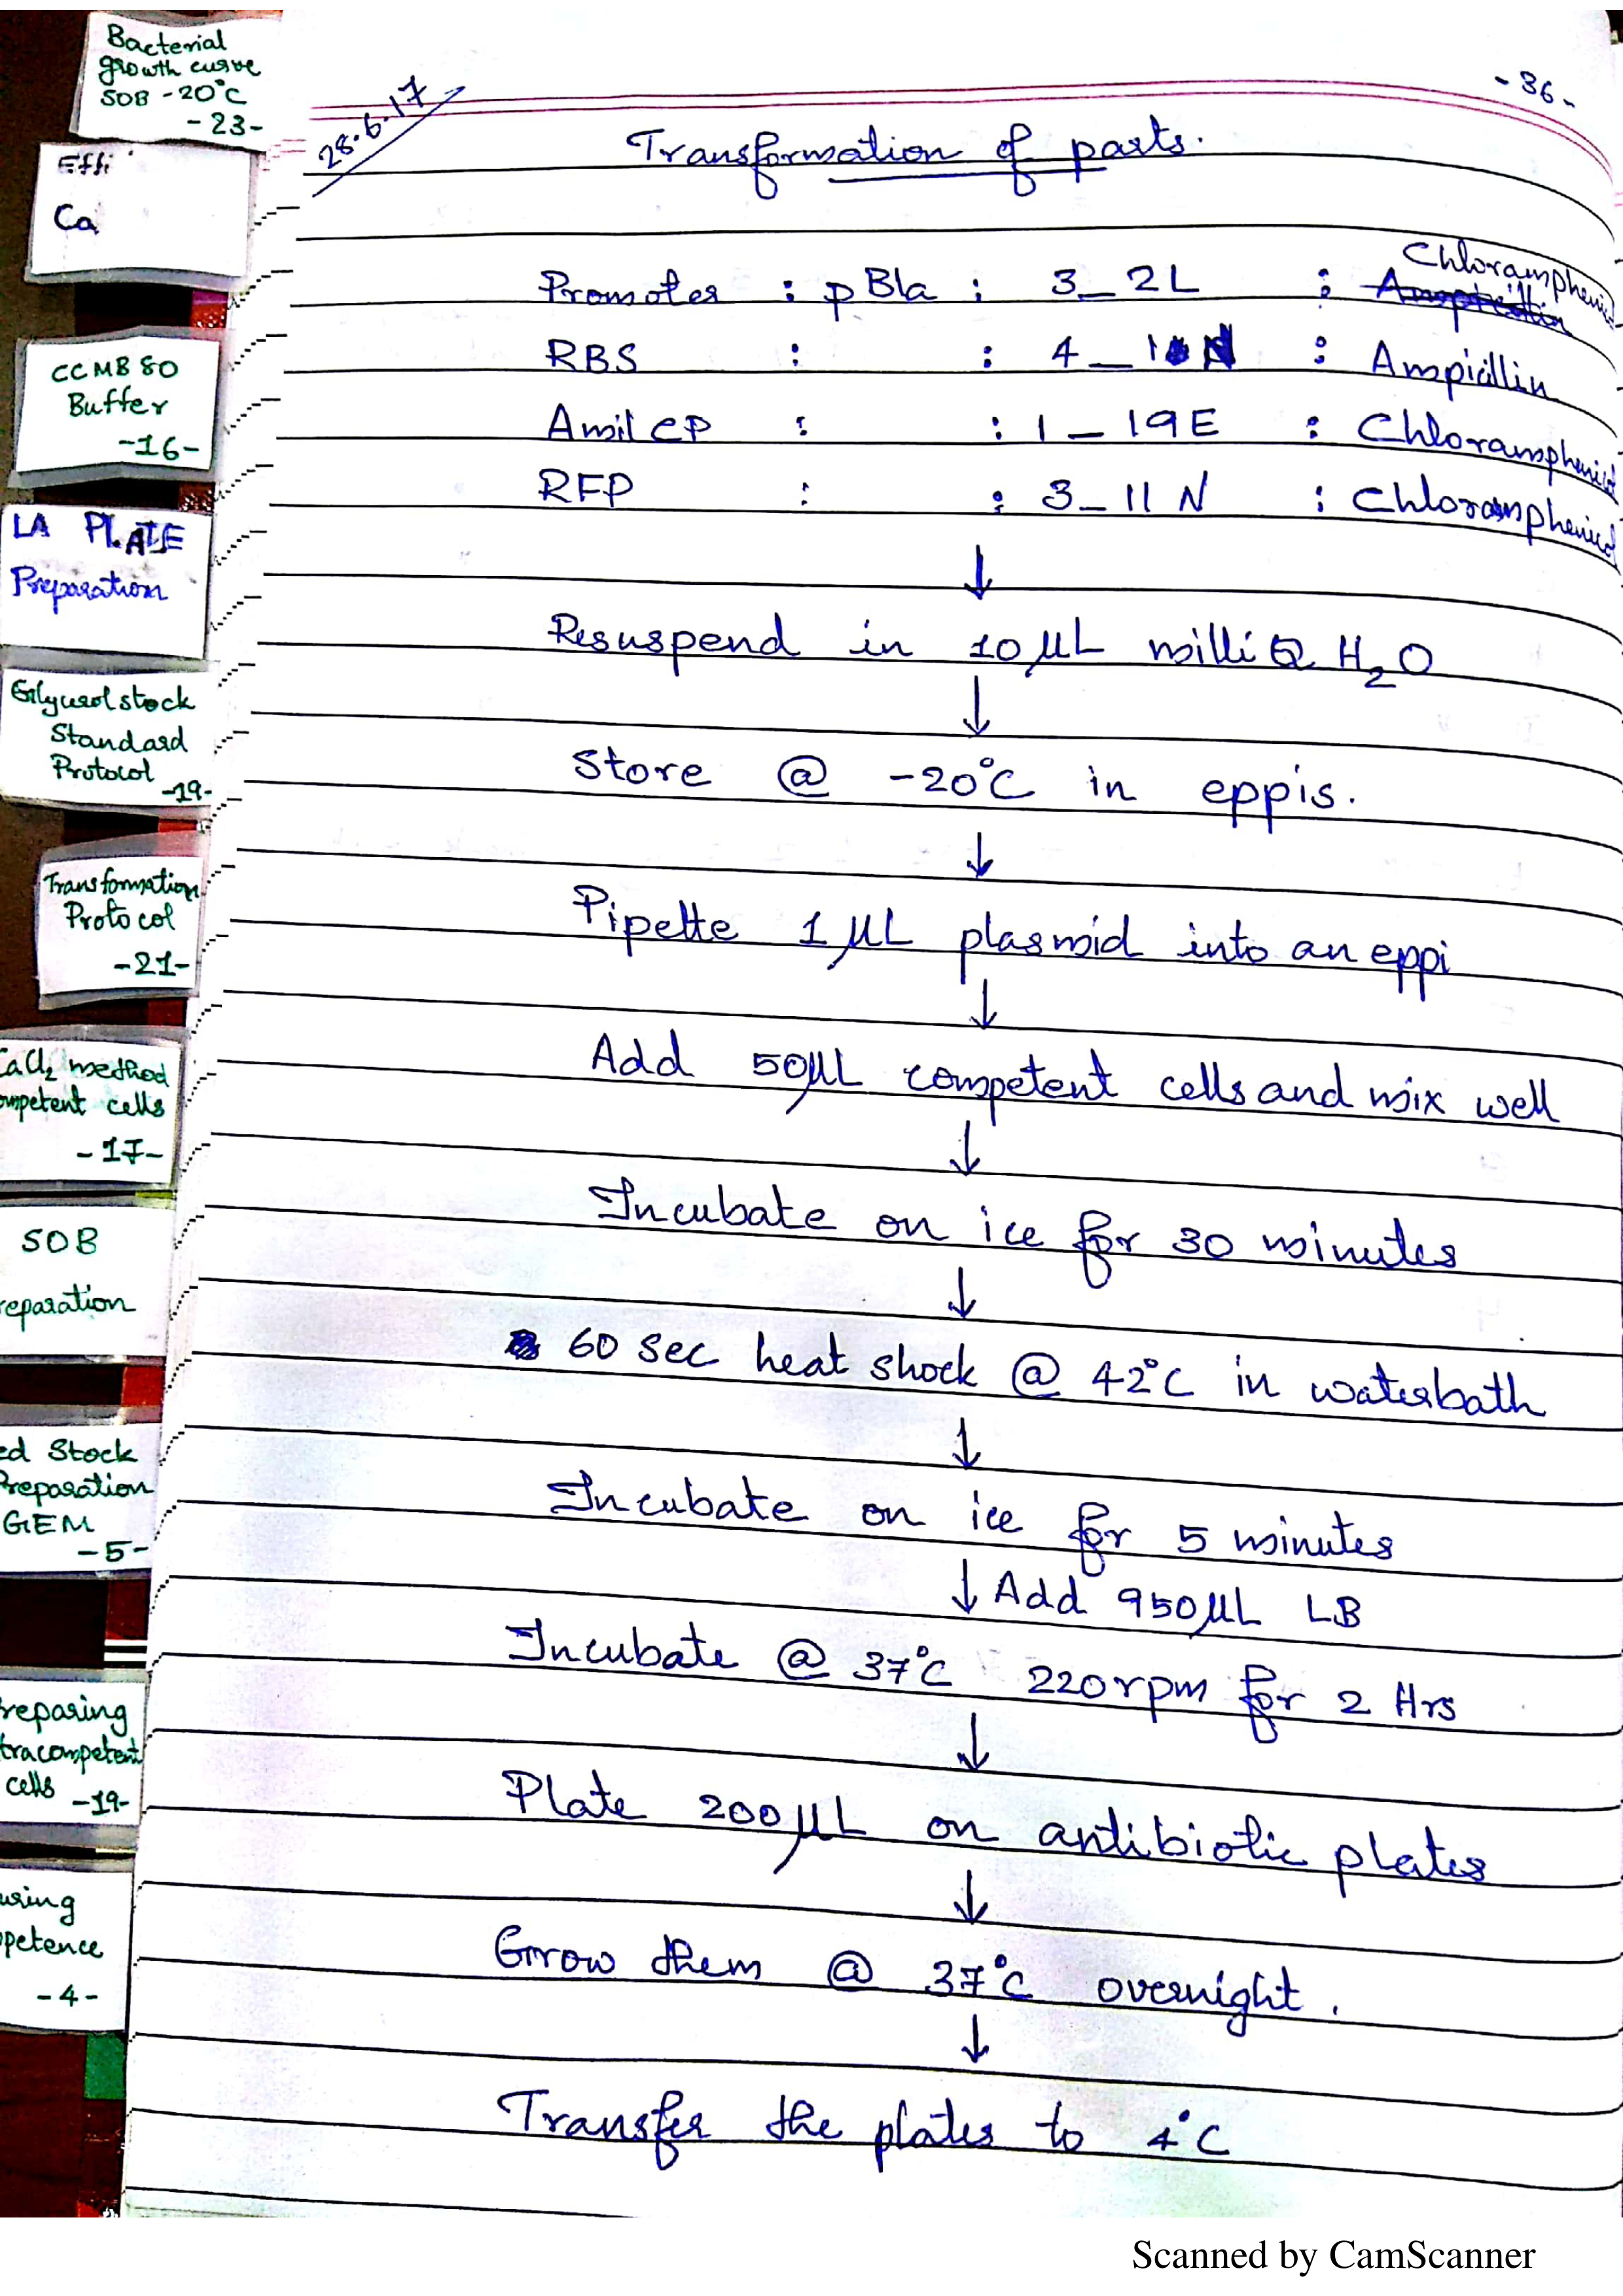 Bacterial
growth curve
SOB -20°C
-23-
Effi
Ca
CCMB 80
Buffer
-16-
LA PLATE
Preparation
Glycerol stock
Standard
Protocol
-19-
Transformation
Protocol
-21-
CaCl2 method
ompetent cells
-17-
SOB
reparation
ed Stock
Preparation
GEM
-5-
reparing
tracompetent
cells -19-
using
petence
-4-
28.6.17
-36-
Transformation of parts.
Promoter : pBla : 3_2L : Chloramphenicol
RBS : : 4_1 N : Ampicillin
Amil CP : : 1_19E : Chloramphenicol
RFP : : 3_11N : Chloramphenicol
↓
Resuspend in 10µL milliQ H2O
↓
Store @ -20°C in eppis.
↓
Pipette 1µL plasmid into an eppi
↓
Add 50µL competent cells and mix well
↓
Incubate on ice for 30 minutes
↓
60 sec heat shock @ 42°C in waterbath
↓
Incubate on ice for 5 minutes
↓ Add 950µL LB
Incubate @ 37°C 220rpm for 2 Hrs
↓
Plate 200µL on antibiotic plates
↓
Grow them @ 37°C overnight.
↓
Transfer the plates to 4°C
Scanned by CamScanner